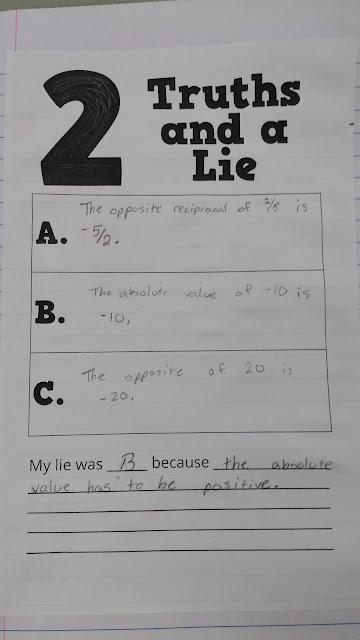 2 Truths
and a
Lie
The opposite reciprocal of 2/5 is
A. -5/2.
The absolute value of -10 is
B. -10.
The opposite of 20 is
C. -20.
My lie was B because the absolute
value has to be positive.